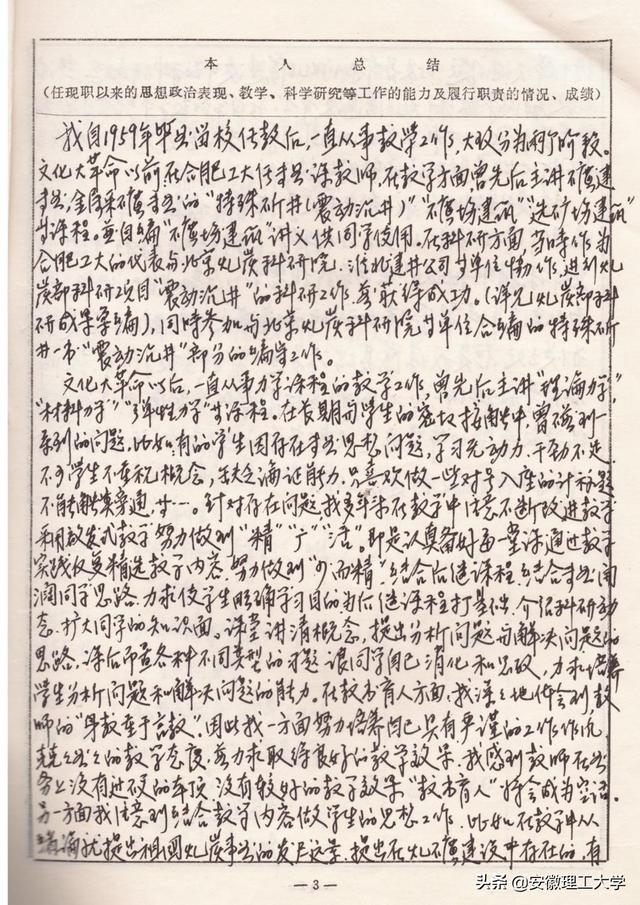 本人总结
（任现职以来的思想政治表现、教学、科学研究等工作的能力及履行职责的情况、成绩）
我自1959年毕业留校任教后，一直从事教学工作，大致分为两个阶段。
文化大革命以前在合肥工大任专业课教师，在教学方面，曾先后主讲矿建
专业、金属采矿专业的“特殊凿井（震动沉井）”“矿场建筑”“选矿场建筑”
等课程。并自编“矿场建筑”讲义供同学使用。在科研方面，当时作为
合肥工大的代表与北京煤炭科研院、淮北建井公司等单位协作，进行煤
炭部科研项目“震动沉井”的科研工作，并获得成功。（详见煤炭部科
研成果汇编），同时参加与北京煤炭科研院等单位合编的特殊凿
井一书“震动沉井”部分的编写工作。
文化大革命以后，一直从事力学课程的教学工作，曾先后主讲“理论力学”，
“材料力学”“弹性力学”等课程。在长期与学生的密切接触中，曾碰到一
系列的问题，比如，有的学生因存在专业思想问题，学习无动力，干劲不足
不少学生不重视概念，缺乏论证能力，只喜欢做一些对号入座的计算题
不能触类旁通，等等。针对存在问题，我多年来在教学中注意不断改进教学
采用启发式教学努力做到“精”“广”“活”。即是认真备好每一堂课通过教学
实践反复精选教学内容，努力做到“少而精”，结合后继课程，结合专业开
阔同学思路，力求使学生明确学习目的为后继课程打基础，介绍科研动
态，扩大同学的知识面。课堂讲清概念，提出分析问题与解决问题的
思路，课后布置各种不同类型的习题让同学自己消化和思考，力求培养
学生分析问题和解决问题的能力。在教书育人方面，我深深地体会到教
师的“身教重于言教”。因此我一方面努力培养自己具有严谨的工作作风，
兢兢业业的教学态度，并力求取得良好的教学效果，我感到教师在业
务上没有过硬的本领，没有较好的教学效果“教书育人”将会成为空话。
另一方面我注意到结合教学内容做学生的思想工作，比如在教学中从
绪论就提出祖国煤炭事业的发展远景，提出在煤矿建设中存在的，有
—3—
头条@安徽理工大学